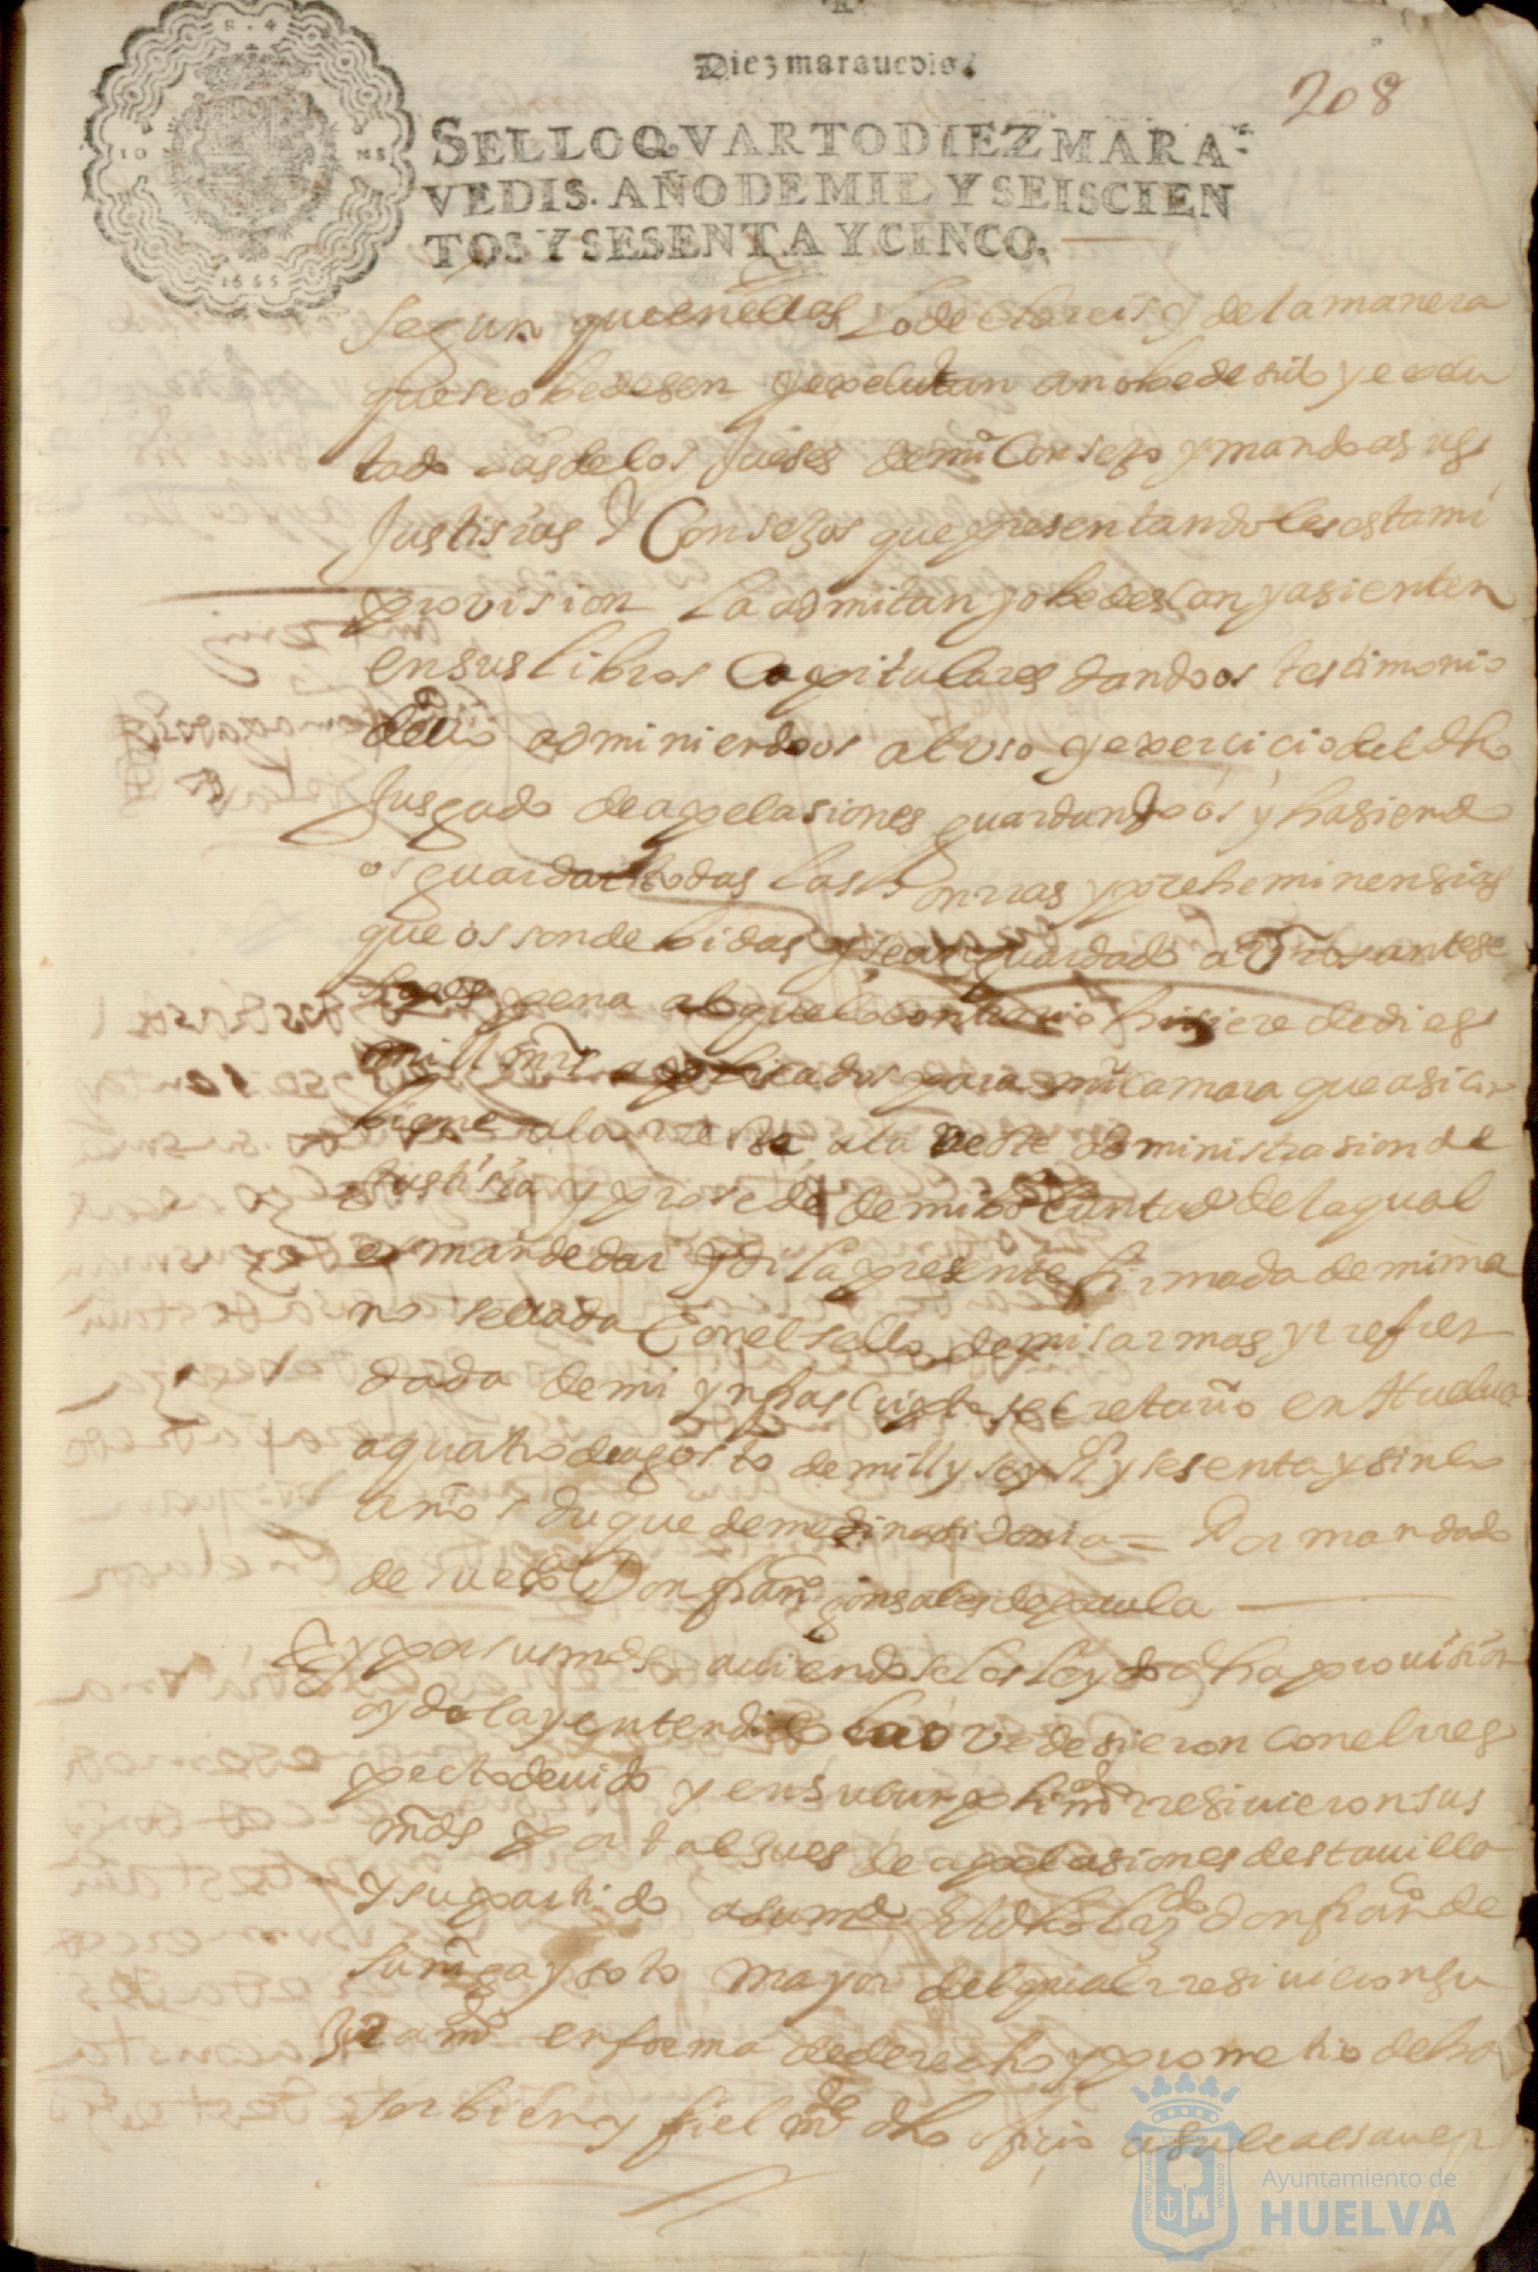 Diez marauedis.
208
SELLO QVARTO DIEZ MARA-
VEDIS. AÑO DE MIL Y SEISCIEN
TOS Y SESENTA Y CINCO.
1665
segun que en ellas lo declareis y de la manera
que se obedesen y executan an obedesido y execu
tado las de los Jueses de mi Consejo y mando a las
Justisias y Consejos que presentandoles esta mi
provision la admitan y obedescan y asienten
en sus libros Capitulares dandoos testimonio
dello adminiendoos al uso y exercicio del dho
Jusgado de apelasiones guardandoos y hasiendo
os guardar todas las honrras y preheminensias
que os son debidas y sean guardado a
pena al que lo contrario hisiere de dies
mill mrs aplicados para mi camara que asi con
biene a la a la recte administrasion de
Justisia y prosede de mi boluntad de la qual
e mande dar y di la presente firmada de mi ma
no sellada Con el sello de mis armas y rrefren
dada de mi ynfrascripto secretario en Huelva
a quatro de agosto de mill y seysos y sesenta y sinco
años duque de medina sidonia = Por mandado
de su exa Don franco gonsales de paula
E por sus mds auiendoseles leydo dha provision
oydola y entendido la ovedesieron con el rres
pecto deuido y en su cunplimto rresiuieron sus
mds por tal Jues de apelasiones desta uilla
y su partido a su md El dho Lzdo don franco de
suñiga y soto mayor del qual rresiuieron su
Juramto en forma de derecho y prometio de ha
ser bien y fielmte dho ofisio a su leal sauer
Ayuntamiento de
HUELVA